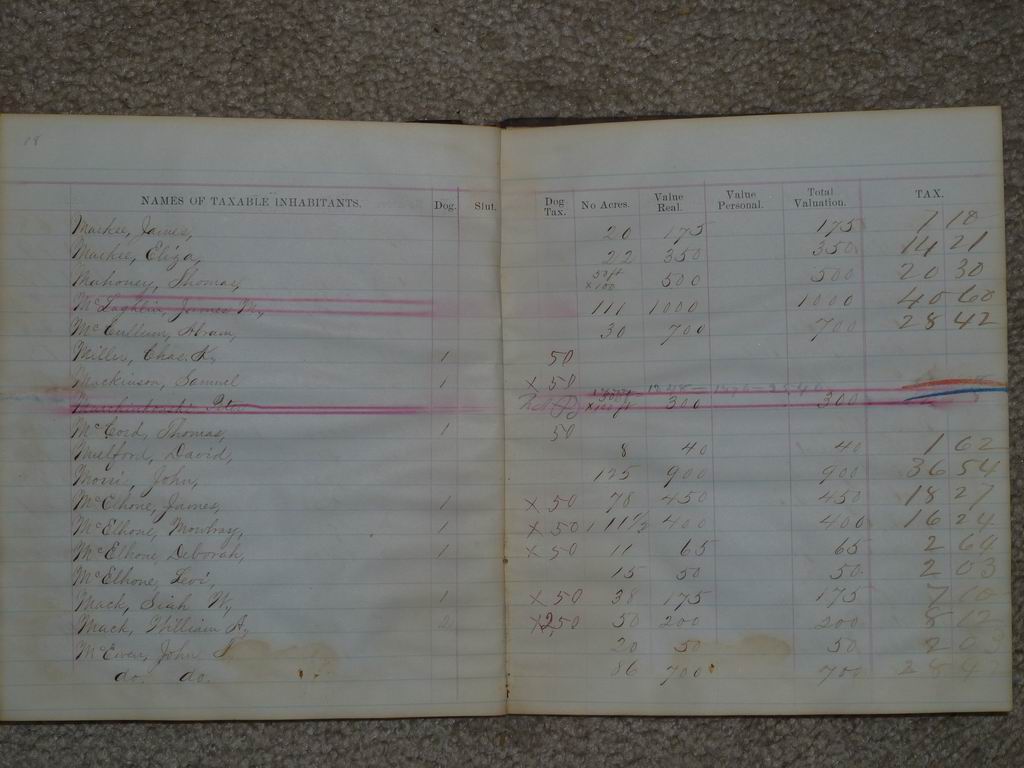 18
NAMES OF TAXABLE INHABITANTS. Dog. Slut. Dog Tax. No Acres. Value Real. Value Personal. Total Valuation. TAX.
Mackee, James, 20 175 175 7 10
Mackie, Eliza, 22 350 350 14 21
Mahoney, Thomas, 50ft x100 500 500 20 30
McLaghlin, James M, 111 1000 1000 40 60
McCullum, Abram, 30 700 700 28 42
Miller, Chas. K, 1 50
Mackinson, Samuel 1 x 50
Peter 300 300
McCord, Thomas, 1 50
Mulford, David, 8 40 40 1 62
John, 175 900 900 36 54
McElhone, James, 1 x 50 78 450 450 18 27
McElhone, Mowbray, 1 x 50 111 1/2 400 400 16 24
McElhone, Deborah, 1 x 50 11 65 65 2 64
McElhone, Levi, 15 50 50 2 03
Mack, W, 1 x 50 38 175 175 7 10
Mack, William H, 2 x 2,50 50 200 200 8 12
McEwen, John S, 20 50 50 2 03
do. do. 86 700 700 28 4